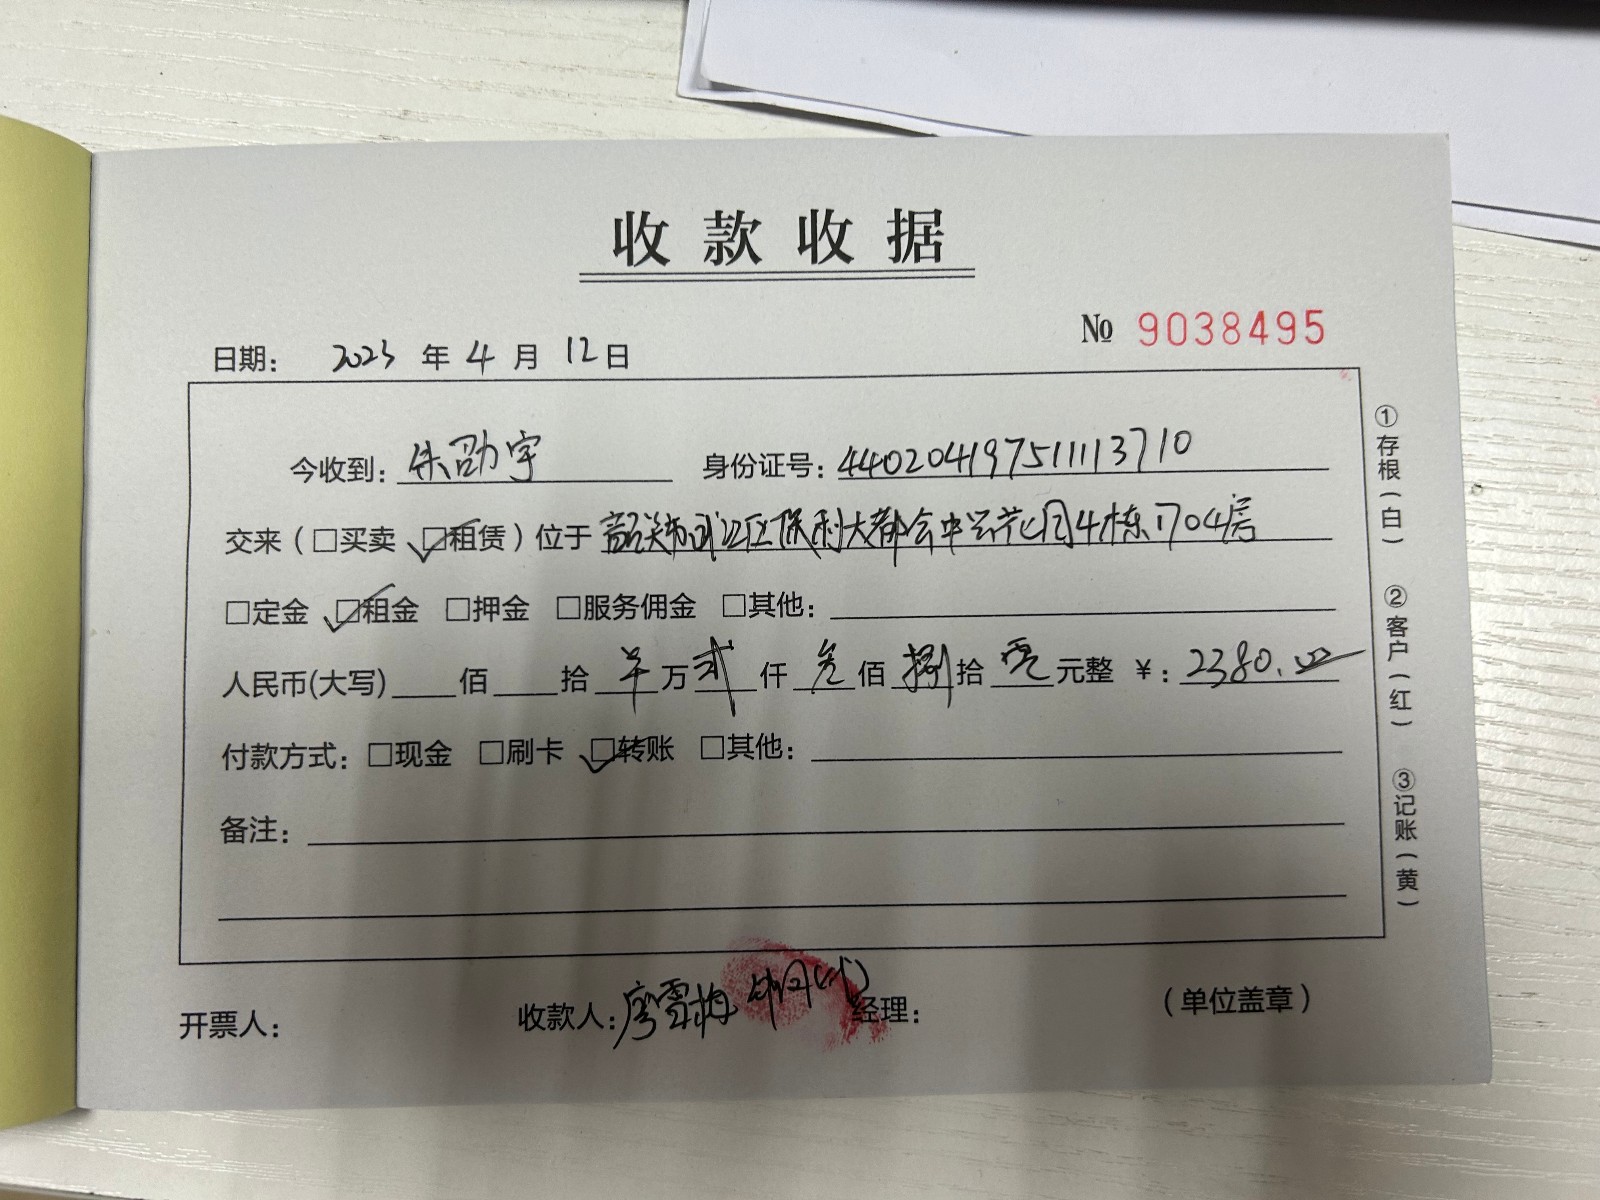 收款收据
№ 9038495
日期: 2023 年 4 月 12 日
今收到: 朱劭宇 身份证号: 440204197511113710
交来(□买卖 ☑租赁)位于 韶关市武江区保利大都会中兴花园4栋1704房
□定金 ☑租金 □押金 □服务佣金 □其他:
人民币(大写) 佰 拾 万 贰 仟 叁 佰 捌 拾 零 元整 ¥: 2380.00
付款方式: □现金 □刷卡 ☑转账 □其他:
备注:
开票人: 收款人: 廖雪梅 经理: (单位盖章)
①存根(白) ②客户(红) ③记账(黄)